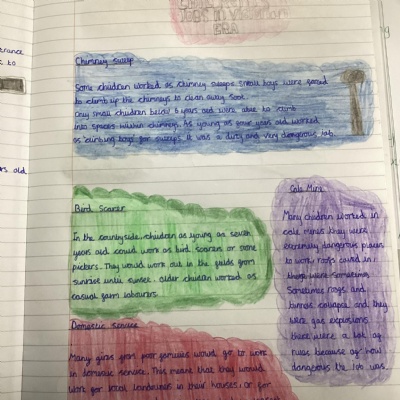 Jobs in Victorian
ERA
Chimney sweep
Some children worked as chimney sweeps small boys were forced
to climb up the chimneys to clean away soot.
Only small children below 6 years old were able to climb
into spaces within chimneys. As young as four years old worked
as 'climbing boys' for sweeps. It was a dirty and very dangerous job.
Bird Scarer
In the countryside, children as young as seven
years old could work as bird scarers or stone
pickers. They would work out in the fields from
sunrise until sunset. older children worked as
casual farm labourers.
Domestic service
Many girls from poor families would go to work
in domestic service. This meant that they would
work for local landowners in their houses, or for
Cole Mine
Many children worked in
cole mines they were
extremely dangerous places
to work roofs caved in.
there were sometimes
Sometimes roofs and
tunnels collapse and they
were gas explosions
there were a lot of
rules because of how
dangerous the job was.
trance
to
rs old